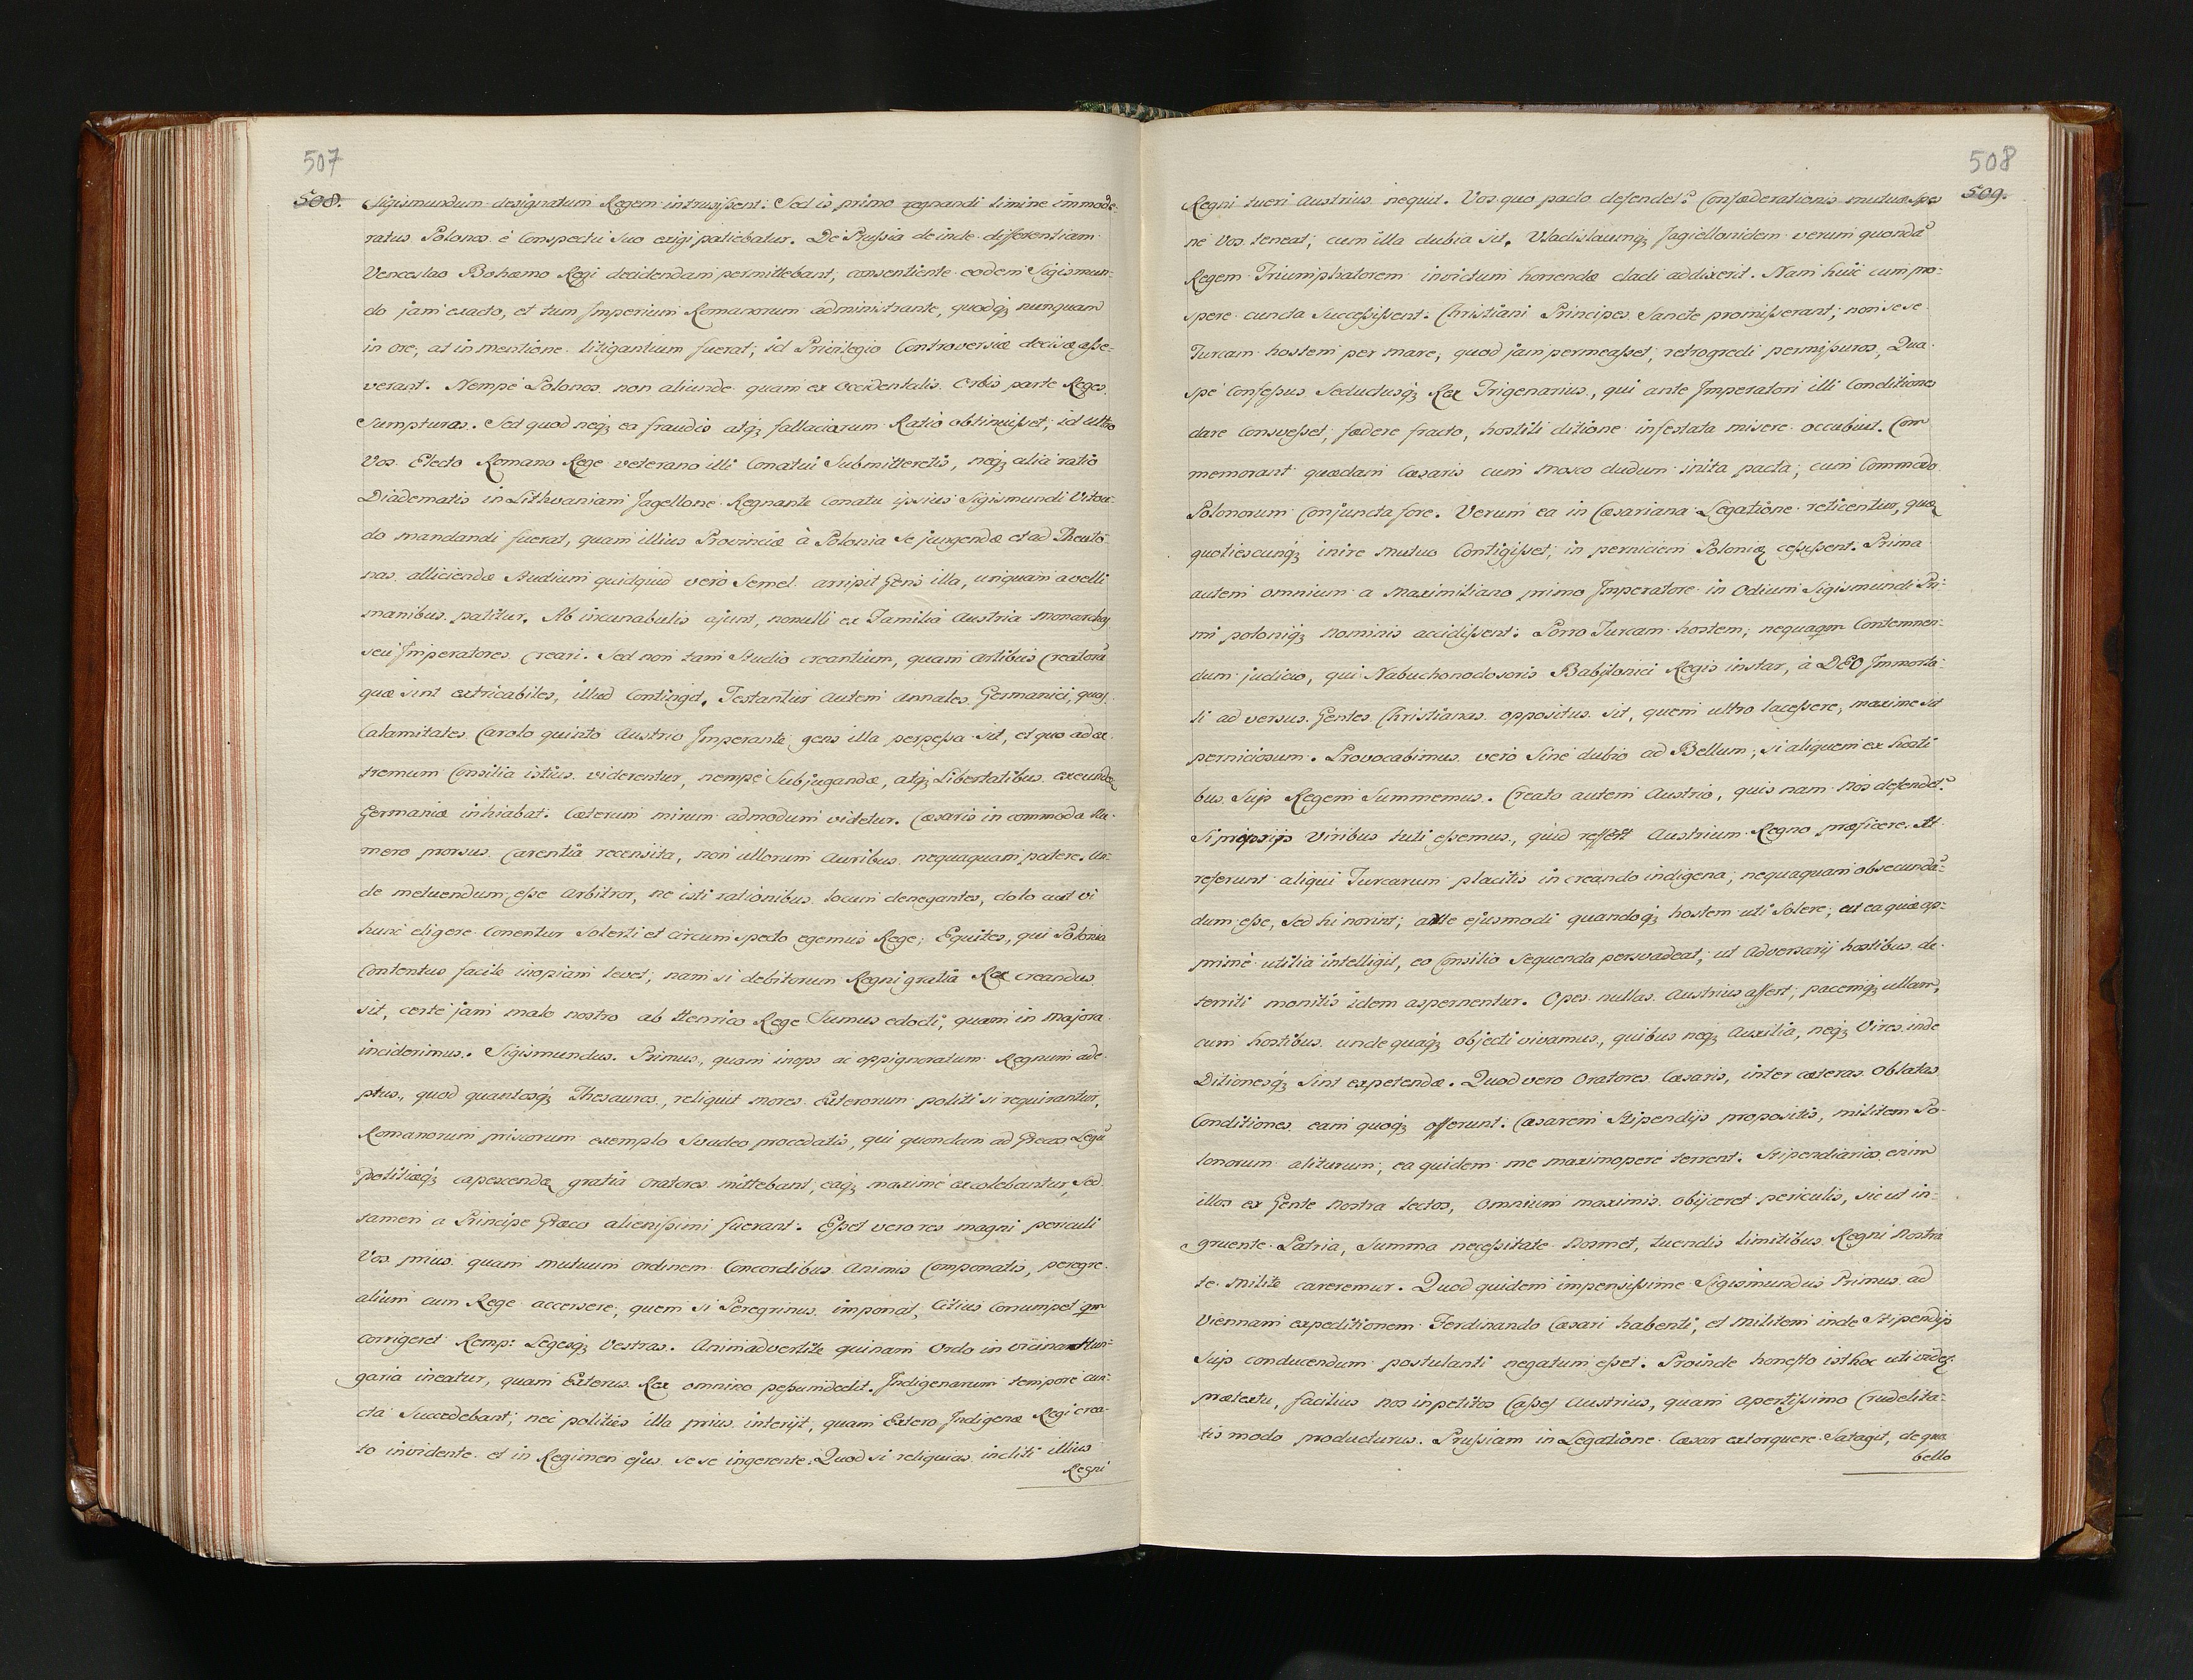 507
508.
Sigismundum designatum Regem intrusißent. Sed is primo regnandi limine immode-
ratus Polonos è Conspectu Suo exigi patiebatur. De Prußia deinde differentiam
Venceslao Bohæmo Regi decidendam permittebant, consentiente eodem Sigismun-
do jam exacto, et tum Imperium Romanorum administrante, quodq; nunquam
in ore, at in mentione litigantium fuerat, id Privilegio Controversiæ decisæ aße-
verant. Nempè Polonos non aliunde quam ex Occidentalis Orbis parte Reges
Sumpturos. Sed quod neq; ea fraudis atq; fallaciarum Ratio obtinuißet, id ultro
Vos Electo Romano Rege veterano illi Conatui Submitteretis, neq; alia ratio
Diadematis in Lithvaniam Jagellone Regnante Conatu ipsius Sigismundi Vitow-
do mandandi fuerat, quam illius Provinciæ à Polonia Sejungendæ et ad Theuto-
nas alliciendæ Studium quidquid verò Semel arripit Gens illa, unquam avelli
manibus patitur. Ab incunabulis ajunt, nonulli ex Familia Austria Monarchas
seu Imperatores Creari. Sed non tam Studio creantium, quam artibus Creatorũ
quæ sint extricabiles, illud Contingit. Testantur autem Annales Germanici, quas
Calamitates Carolo quinto Austrio Imperante gens illa perpeßa sit, et quo ad ex-
tremum Consilia istius viderentur, nempè Subjugandæ, atq; Libertatibus exeundæ
Germaniæ inhiabat. Cæterum mirum admodum videtur. Cæsaris incommoda Nu-
mero prorsus Carentia recensita, non ullorum Auribus nequaquam patere. Un-
de metuendum eße arbitror, ne isti rationibus locum denegantes, dolo aut vi
hunc eligere Conentur Solerti et circumspecto egemus Rege; Equites, qui Polonia
Contentus facile inopiam levet, nam si debitorum Regni gratiâ Rex creandus
sit, certè jam malo nostro ab Henrico Rege Sumus edocti, quam in majora
inciderimus. Sigismundus Primus, quam inops ac oppignoratum Regnum ade-
ptus, quod quantosq; Thesauros, reliquit mores Exterorum politi si requirantur,
Romanorum priscorum exemplo Svadeo procedatis, qui quondam ad Græcos Legũ
Politiæq; capescendæ gratiâ Oratores mittebant, eaq; maximè excolebantur, Sed
tamen a Principe Græco alienißimi fuerant. Eßet vero res magni periculi
Vos prius quam mutuum ordinem Concordibus Animis Componatis, peregre
alium cum Rege accersere, quem si Peregrinus imponat, Citius Corrumpet qm̃
Corrigeret Remp: Legesq; Vestras. Animadvertite quinam Ordo in vicina Hun-
garia ineatur, quam Exterus Rex omnino peßumdedit. Indigenarum tempore cun-
cta Succedebant, nec polities illa prius interijt, quam Extero Indigenæ Regi crea-
to invidente et in Regimen ejus sese ingerente. Quod si reliquias incliti illius
Regni
508
509.
Regni tueri Austrius nequit. Vos quo pacto defendet? Confæderationis mutuæ Spes
nè Vos teneat, cum illa dubia sit. Vladislaumq; Jagiellonidem verum quondã
Regem Triumphatorem invictum horrendæ cladi addixerit. Nam huic cum pro-
spere cuncta Succeßißent. Christiani Principes Sancte promißerant; non sese
Turcam hostem per mare, quod jam permeaßet, retrogredi permißuros, Qua
spe Confeßus Seductusq; Rex Trigenarius, qui ante Imperatori illi Conditiones
dare Consveßet, fædere fracto, hostili ditione infestata misere occubuit. Com
memorant quædam Cæsaris cum Mosco dudum inita pacta, cum Commodo
Polonorum Conjuncta fore. Verum ea in Cæsariana Legatione reticentur, quæ
quotiescunq; inire mutuo Contigißet, in perniciem Poloniæ ceßißent. Prima
autem omnium a Maximiliano primo Imperatore in Odium Sigismundi Pri-
mi poloniq; Nominis accidißent. Porro Turcam hostem, nequaqm̃ Contemnen-
dum judico, qui Nabuchonodosoris Babylonici Regis instar, à DEO Immorta-
li adversus Gentes Christianas oppositus sit, quem ultro laceßere, maxime sit
perniciosum. Provocabimus verò Sinè dubio ad Bellum, si aliquem ex hosti
bus Suis Regem Summemus. Creato autem Austrio, quis nam Nos defendet?
Si propriis Viribus tuti eßemus, quid reffert Austrium Regno præficere. At
referunt aliqui Turcarum placitis in creando indigena, nequaquam obsecundã-
dum eße, Sed hi norint, arte ejusmodi quandoq; hostem uti Solere, ut ea quæ ap-
primè utilia intelligit, eo Consilio Sequenda persvadeat, ut Adversarij hostibus de-
territi monitis idem aspernentur. Opes nullas Austrius affert, pacemq; ullam,
cum hostibus undequaq; objecti vivamus, quibus neq; Auxilia, neq; Vires inde
Ditionesq; Sint expetendæ. Quod vero Oratores Cæsaris, inter cæteras Oblatas
Conditiones eam quoq; offerunt. Cæsarem Stipendijs propositis, militem Po-
lonorum aliturum, ea quidem me maximopere terrent. Stipendiarios enim
illos ex Gente Nostra lectos, Omnium maximis obijceret periculis, sic ut in-
gruente Patria, Summa neceßitate Nosmet, tuendis limitibus Regni Nostri
te Milite careremur. Quod quidem impensißime Sigismundus Primus ad
Viennam expeditionem Ferdinando Cæsari habenti, et Militem inde Stipendijs
Suis conducendum postulanti negatum eßet. Proinde honesto isthoc uti videt
prætextu, facilius nos inpetitos Caßes Austrius, quam Apertißimo Crudelita-
tis modo producturus. Prußiam in Legatione Cæsar extorquere Satagit, de qua
bello